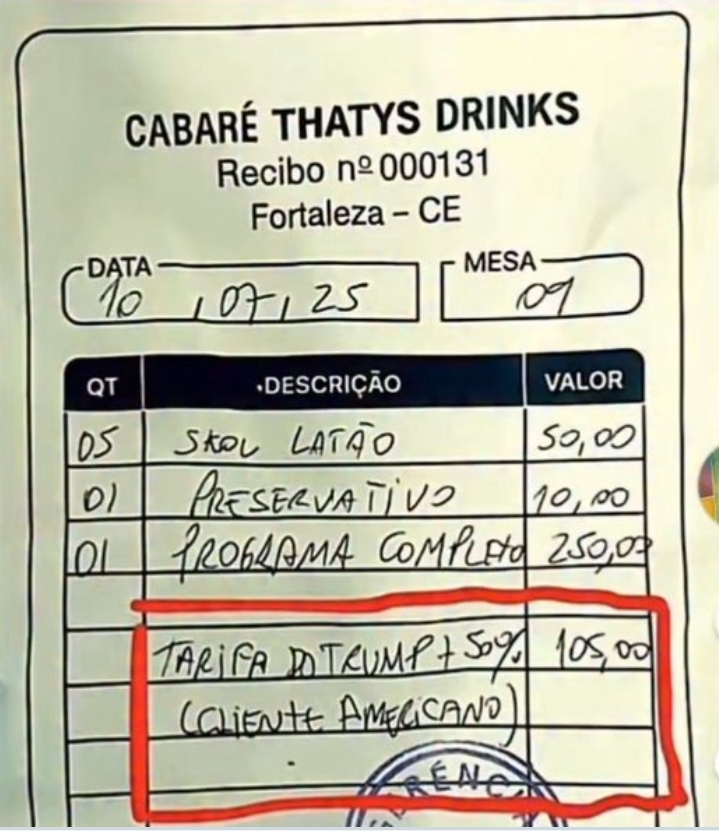 CABARÉ THATYS DRINKS
Recibo nº 000131
Fortaleza – CE
DATA MESA
10 / 07 / 25 09
QT DESCRIÇÃO VALOR
05 SKOL LATÃO 50,00
01 PRESERVATIVO 10,00
01 PROGRAMA COMPLETO 250,00
TARIFA DO TRUMP + 50% 105,00
(CLIENTE AMERICANO)